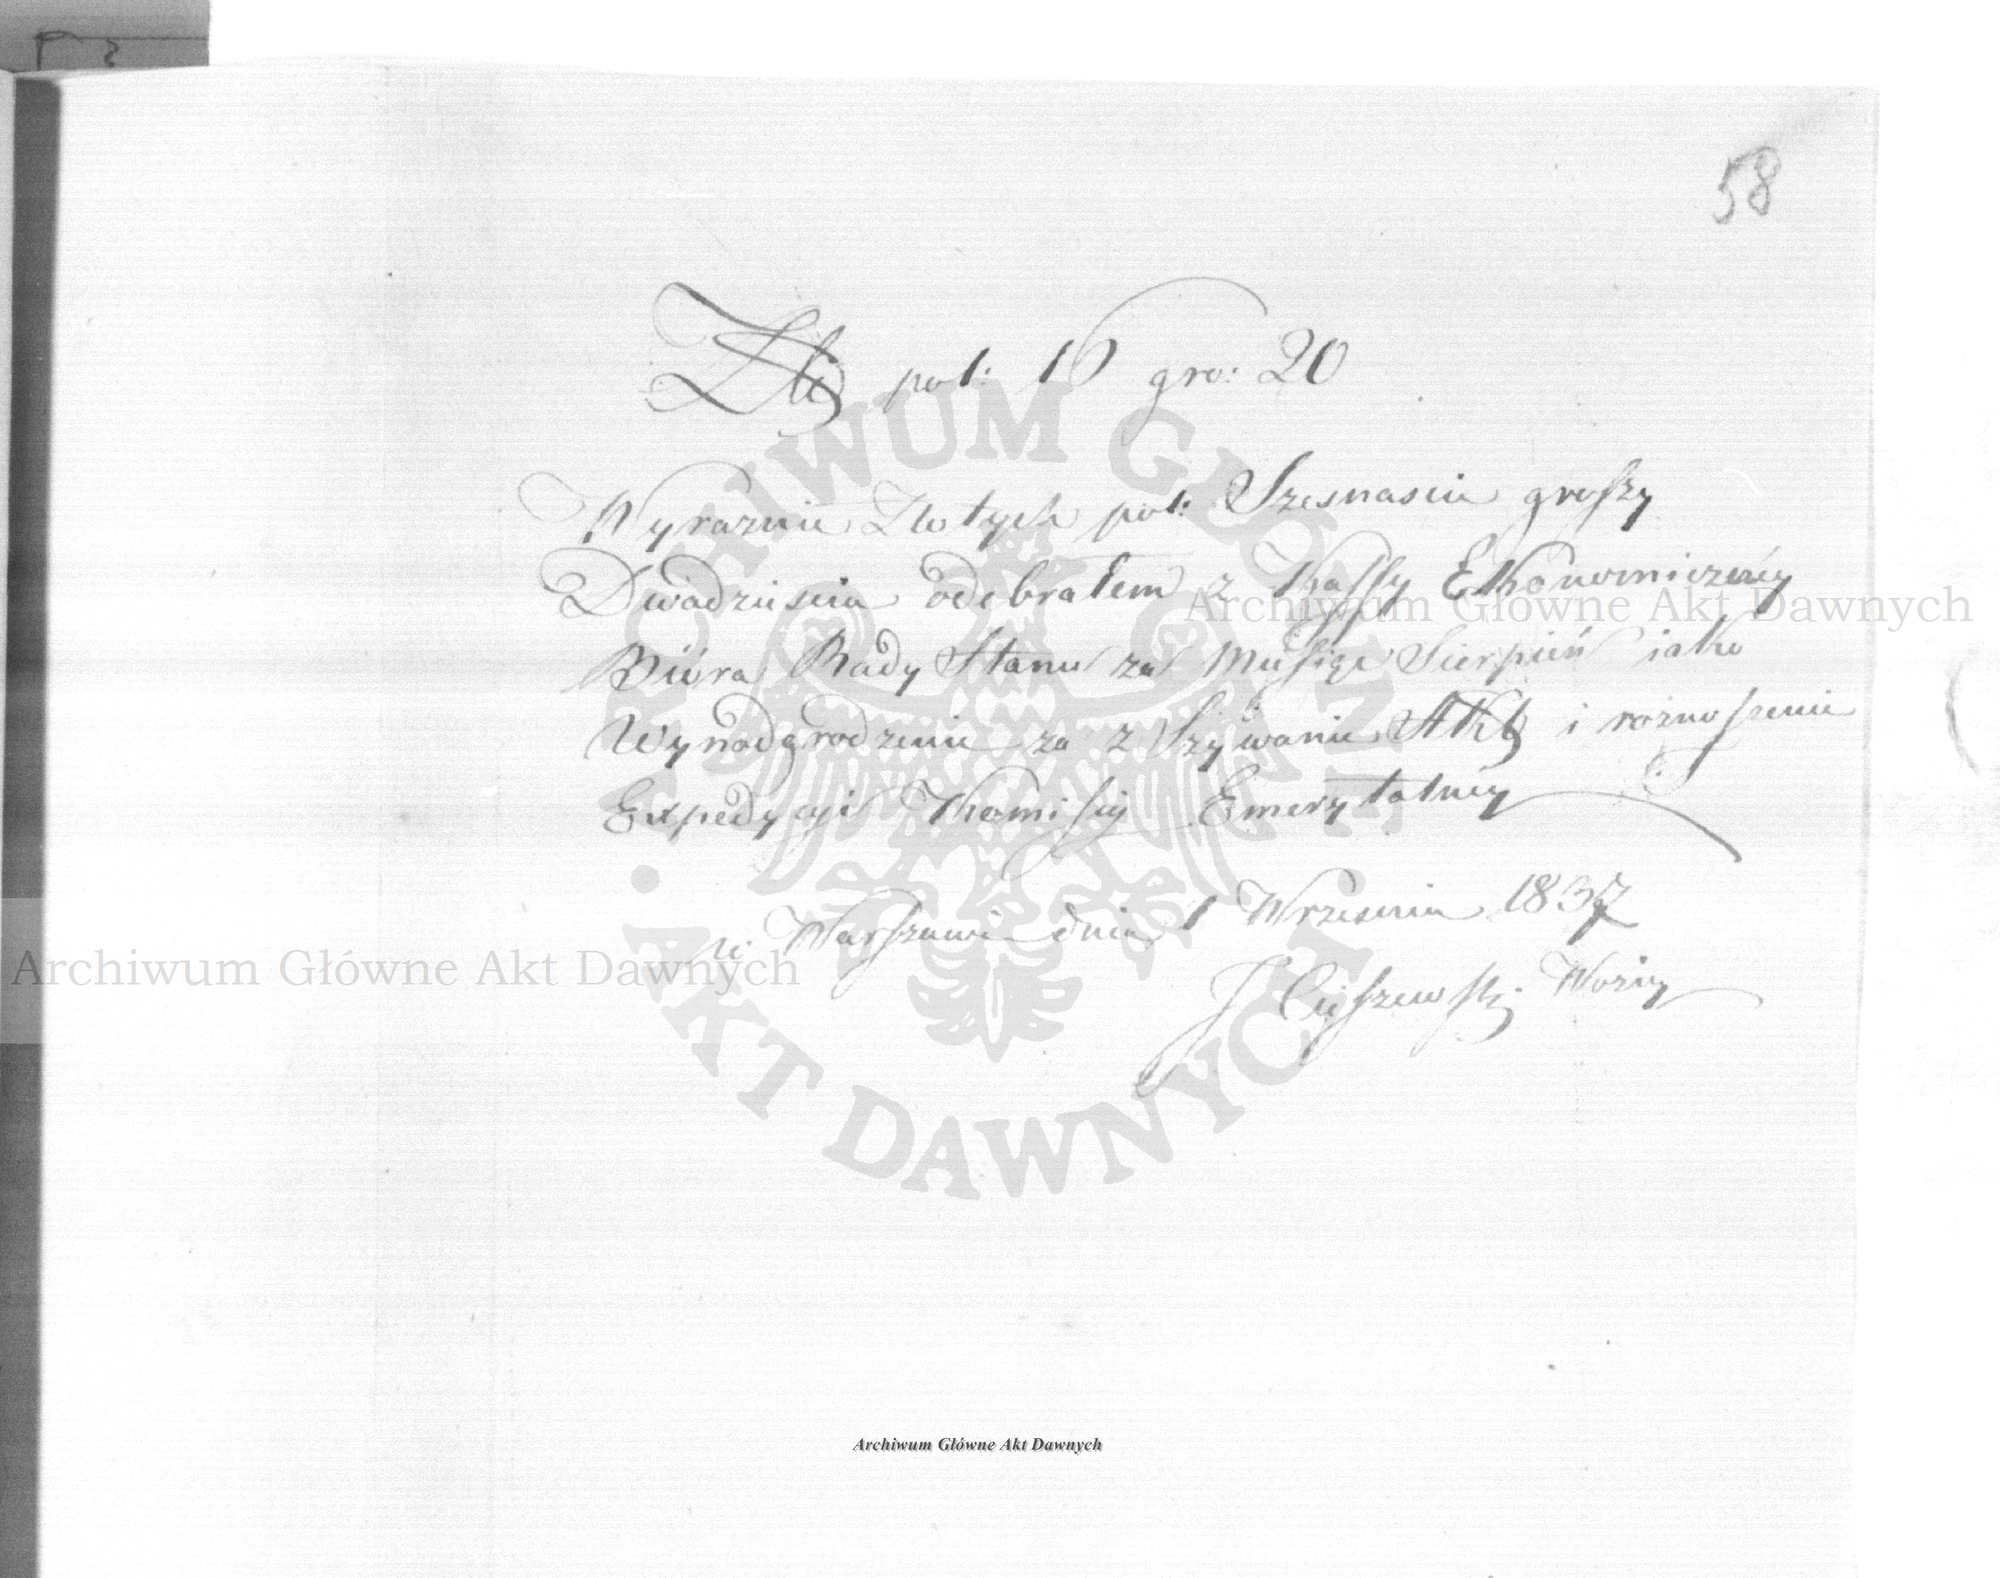 58
Złt pol: 16 gro: 20
Wyraznie Złotych pol: Szesnascie groszy
Dwadziescia odebrałem z Kassy Ekonomiczney
Biura Rady Stanu za Miesiąc Sierpień iako
Wynadgrodzenie za zszywanie Akt i roznoszenie
Expedycyi Komisyi Emerytalney
w Warszawie dnia 1 Wrzesnia 1837
J Ciyszewski Wozny
ARCHIWUM GŁÓWNE
AKT DAWNYCH
Archiwum Główne Akt Dawnych
Archiwum Główne Akt Dawnych
Archiwum Główne Akt Dawnych